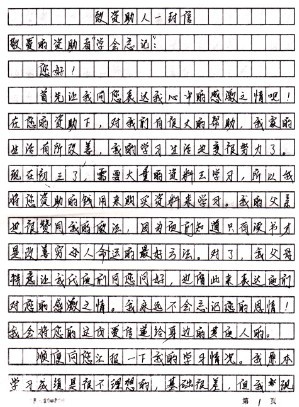 致资助人一封信
敬爱的资助者学会忘记:
您好!
首先让我向您表达我心中的感激之情吧!
在您的资助下,对我们有很大的帮助,我家的
生活有所改善,我的学习生活也更努力了。
现在初三了,需要大量的资料去学习,所以我
将您资助的钱用来购买资料来学习。我的父美
也很赞同我的做法,因为他们知道只有读书才
是改善穷人命运的最好方法。对了,我父母
特意让我代他们向您问好,也借此来表达他们
对您的感激之情。我永远不会忘记您的恩情!
我会将您的这份爱传递给身边的更多人的。
顺便向您汇报一下我的学习情况。我原本
学习成绩是很不理想的,基础很差,但我
第1页